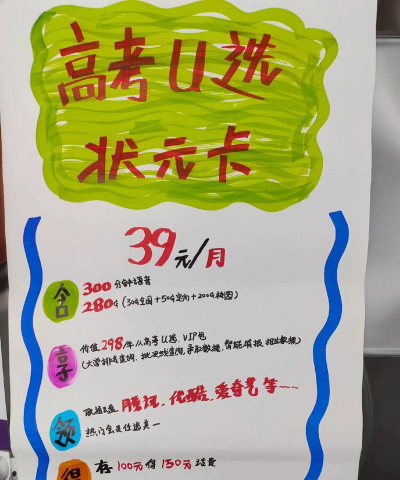 高考U选
状元卡
39元/月
含
300分钟语音
280G(30G全国+50G定向+200G校园)
享
价值298/年从高考U选、VIP包
(大学排名查询、批次线查询、录取数据、智能填报、招生数据)
领
联超火盒腾讯、优酷、爱奇艺等一
热门会员任选其一
得
存100元得150元话费